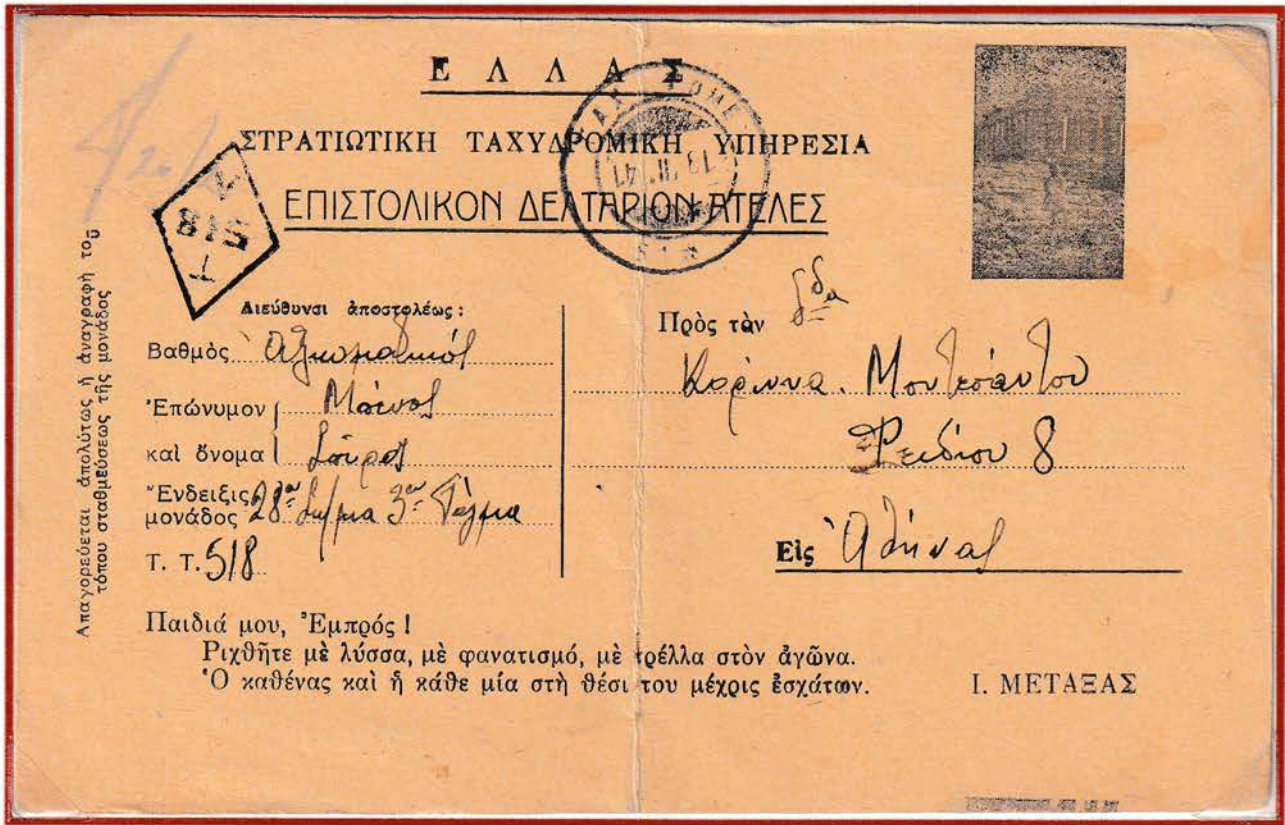 ΕΛΛΑΣ
ΣΤΡΑΤΙΩΤΙΚΗ ΤΑΧΥΔΡΟΜΙΚΗ ΥΠΗΡΕΣΙΑ
ΕΠΙΣΤΟΛΙΚΟΝ ΔΕΛΤΑΡΙΟΝ ΑΤΕΛΕΣ
518
Ἀπαγορεύεται ἀπολύτως ἡ ἀναγραφὴ τοῦ
τόπου σταθμεύσεως τῆς μονάδος
Διεύθυνσι ἀποστολέως:
Βαθμὸς Ἀξιωματικός
Ἐπώνυμον
καὶ ὄνομα
Ἔνδειξις
μονάδος 28ον 3ον Τάγμα
Τ. Τ. 518
Πρὸς τὸν δδα
Κορίννα
Φειδίου 8
Εἰς Ἀθήνας
Παιδιά μου, Ἐμπρός!
Ριχθῆτε μὲ λύσσα, μὲ φανατισμό, μὲ τρέλλα στὸν ἀγῶνα.
Ὁ καθένας καὶ ἡ κάθε μία στὴ θέσι του μέχρις ἐσχάτων.
Ι. ΜΕΤΑΞΑΣ